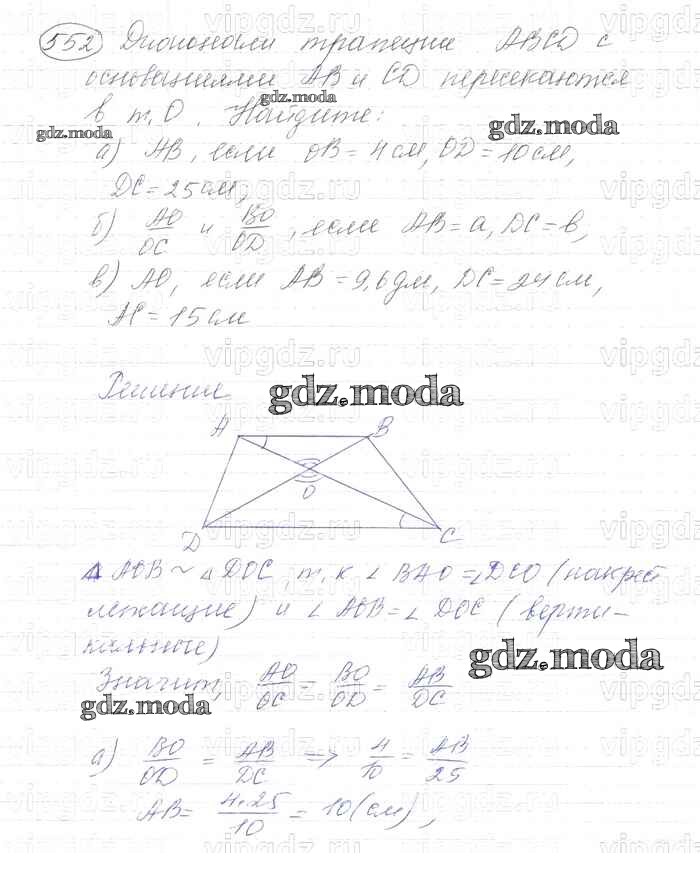 552 Диагонали трапеции ABCD с
основаниями AB и CD пересекаются
в т. O. Найдите:
gdz.moda
gdz.moda
gdz.moda
а) AB, если OB = 4 см, OD = 10 см,
DC = 25 см,
б) AO/OC и BO/OD, если AB = a, DC = b,
в) AO, если AB = 9,6 дм, DC = 24 см,
AC = 15 см
Решение
gdz.moda
A B
O
D C
Δ AOB ~ Δ DOC, т.к ∠ BAO = ∠ DCO (накрест
лежащие) и ∠ AOB = ∠ DOC (верти-
кальные)
gdz.moda
Значит, AO/OC = BO/OD = AB/DC
gdz.moda
а) BO/OD = AB/DC => 4/10 = AB/25
AB = 4·25/10 = 10 (см),
vipgdz.ru